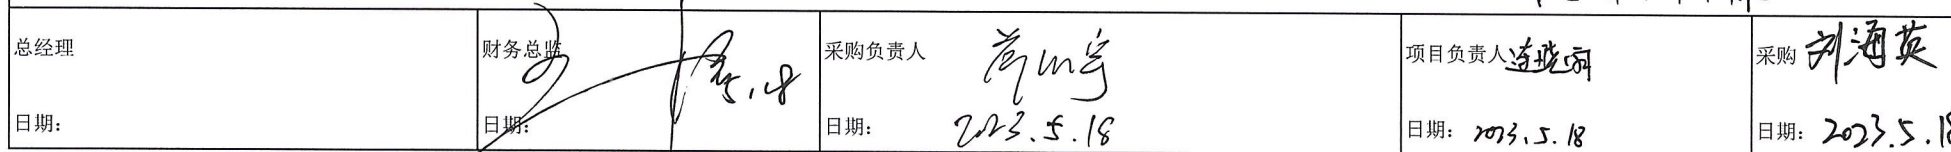 总经理
财务总监
采购负责人
项目负责人 连晓丽
采购 刘海英
日期:
日期: 5.18
日期: 2023.5.18
日期: 2023.5.18
日期: 2023.5.18